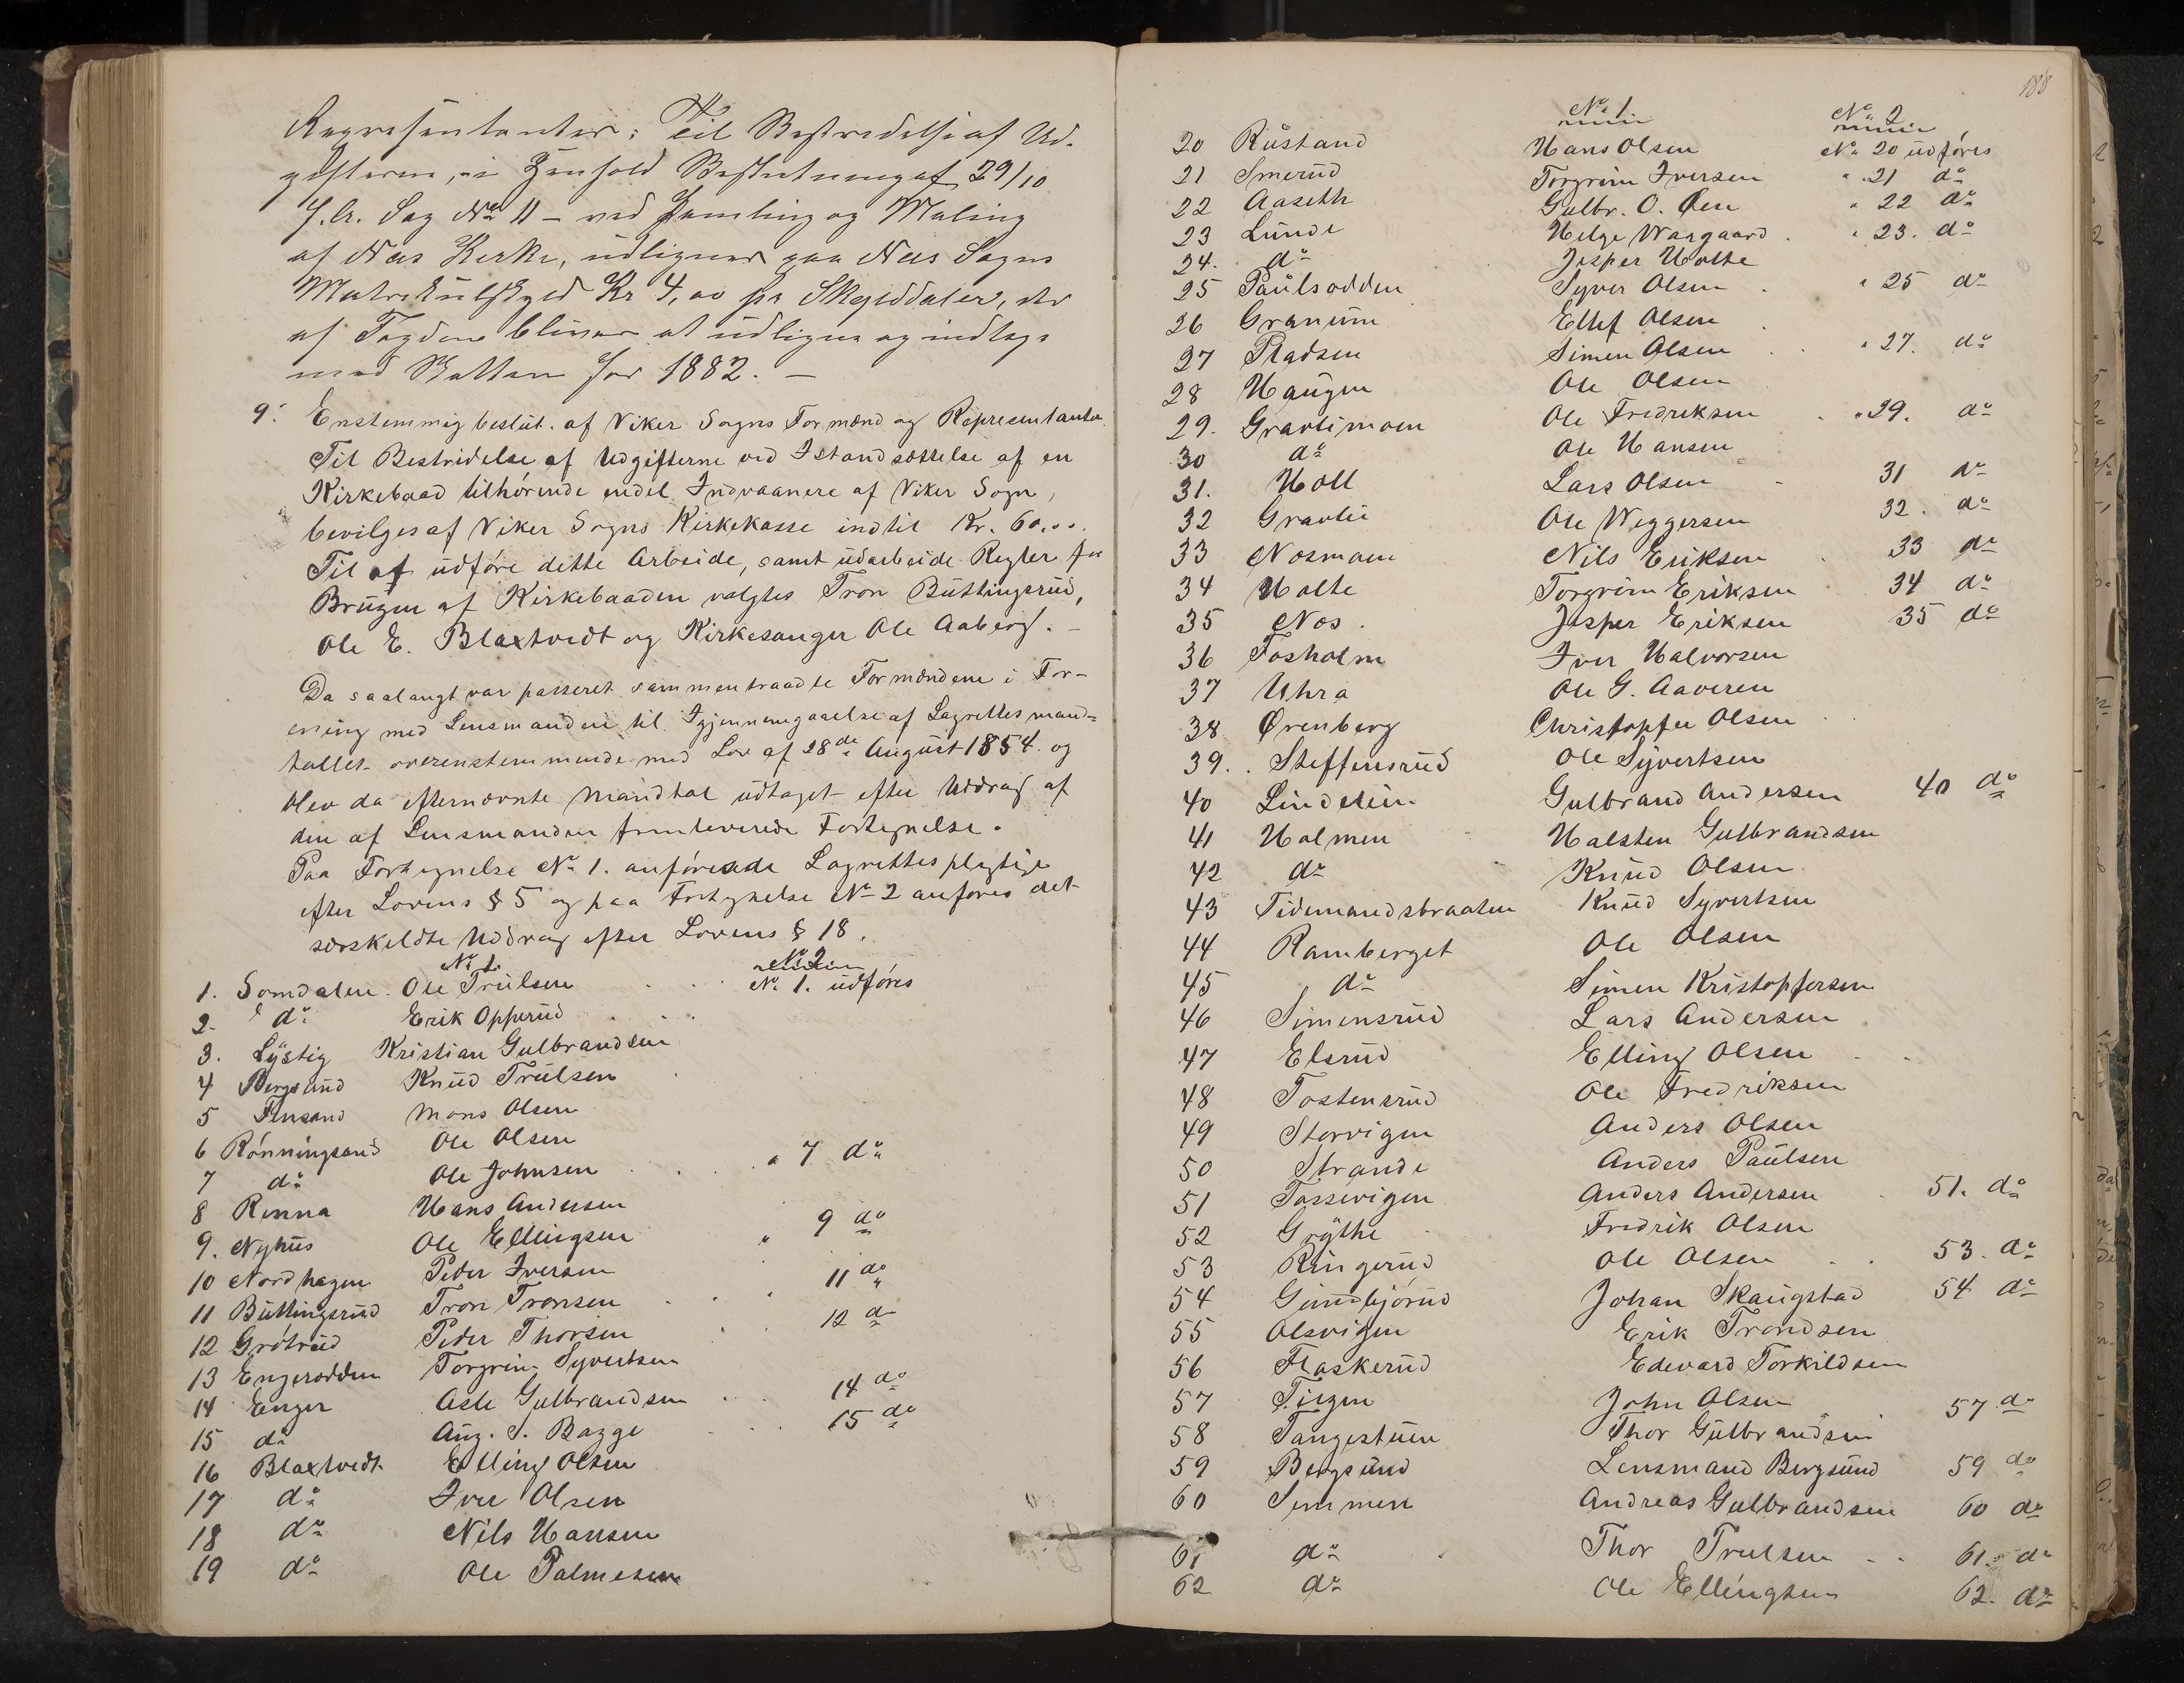 Repræsentanter: Til Bestridelse af Ud-
gifterne, i Henhold Beslutning af 29/10
f. A. Sag No 11 – ved Pamling og Maling
af Næs Kirke, udlignes paa Næs Sogns
Matrikulskyld Kr 4,00 pr Skylddaler, der
af Fogden bliver at udligne og indtage
med Skatten for 1882. –
9. Enstemmig beslut. af Viker Sogns Formænd og Representanter
Til Bestridelse af Udgifterne ved Istandsættelse af en
Kirkebaad tilhørende endel Indvaanere af Viker Sogn,
bevilges af Viker Sogns Kirkekasse indtil Kr. 60.00.
Til at udføre dette Arbeide, samt udarbeide Regler for
Brugen af Kirkebaaden valgtes Tron Buttingsrud,
Ole E. Blaxtvedt og Kirkesanger Ole Aaberg. –
Da saalangt var passeret sammentraadte Formændene i For-
ening med Lensmanden til Igjennemgaaelse af Lagrettesmand-
tallet overenstemmende med Lov af 28de August 1854. og
blev da efternævnte Mandtal udtaget efter Uddrag af
den af Lensmanden fremleverede Fortegnelse.
Paa Fortegnelse No 1. anføres de Lagrettespligtige
efter Lovens § 5 og paa Fortegnelse No 2 anføres det
særskildte Uddrag efter Lovens § 18.
No 1. No 2
1. Somdalen. Ole Trulsen No 1. udføres
2. do Erik Opperud
3. Lystig Kristian Gulbrandsen
4 Bergsund Knud Trulsen
5 Finsand Mons Olsen
6 Rønningsand Ole Olsen
7 do Ole Johnsen " 7 do
8 Renna Hans Andersen
9. Nyhus Ole Ellingsen " 9 do
10 Nordhagen Peder Iversen
11 Buttingsrud Tron Tronsen 11 do
12 Grøtrud Peder Thorsen 12 do
13 Engerodden Torgrim Syvertsen
14 Enger Asle Gulbrandsen 14 do
15 do Aug. S. Bagge 15 do
16 Blaxtvedt Elling Olsen
17 do Iver Olsen
18 do Nils Hansen
19 do Ole Palmesen
188
No 1 No 2
20 Rustand Hans Olsen No 20 udføres
21 Smerud Torgrim Iversen " 21 do
22 Aaseth Gulbr. O. Øen " 22 do
23 Lunde Helge Waagaard " 23. do
24. do Jesper Holte
25 Paulsodden Syver Olsen " 25 do
26 Granum Ellef Olsen
27 Pladsen Simen Olsen " 27. do
28 Haugen Ole Olsen
29. Gravlimoen Ole Fredriksen " 29. do
30 do Ole Hansen
31. Holl Lars Olsen 31 do
32 Gravli Ole Weggersen 32. do
33 Nosmoen Nils Eriksen 33 do
34 Holte Torgrim Eriksen 34 do
35 Nos. Jesper Eriksen 35 do
36 Fosholm Iver Halvorsen
37 Uhra Ole G. Aaveren
38 Ørenberg Christopfer Olsen
39. Steffensrud Ole Syvertsen
40 Lindelien Gulbrand Andersen 40 do
41 Holmen Halsten Gulbrandsen
42 do Knud Olsen
43 Tidemandsbraaten Knud Syvertsen
44 Ramberget Ole Olsen
45 do Simen Kristopfersen
46 Simensrud Lars Andersen
47 Elsrud Elling Olsen
48 Tostensrud Ole Fredriksen
49 Storvigen Anders Olsen
50 Strande Anders Paulsen
51 Tossevigen Anders Andersen 51. do
52 Grythe Fredrik Olsen
53 Ringerud Ole Olsen 53. do
54 Gundbjørud Johan Skaugstad 54 do
55 Olsvigen Erik Trondsen
56 Flaskerud Edevard Torkildsen
57 Tiegen John Olsen 57 do
58 Tangestuen Thor Gulbrandsen
59 Bergsund Lensmand Bergsund 59 do
60 Semmen Andreas Gulbrandsen 60 do
61 do Thor Trulsen 61. do
62 do Ole Ellingsen 62. do